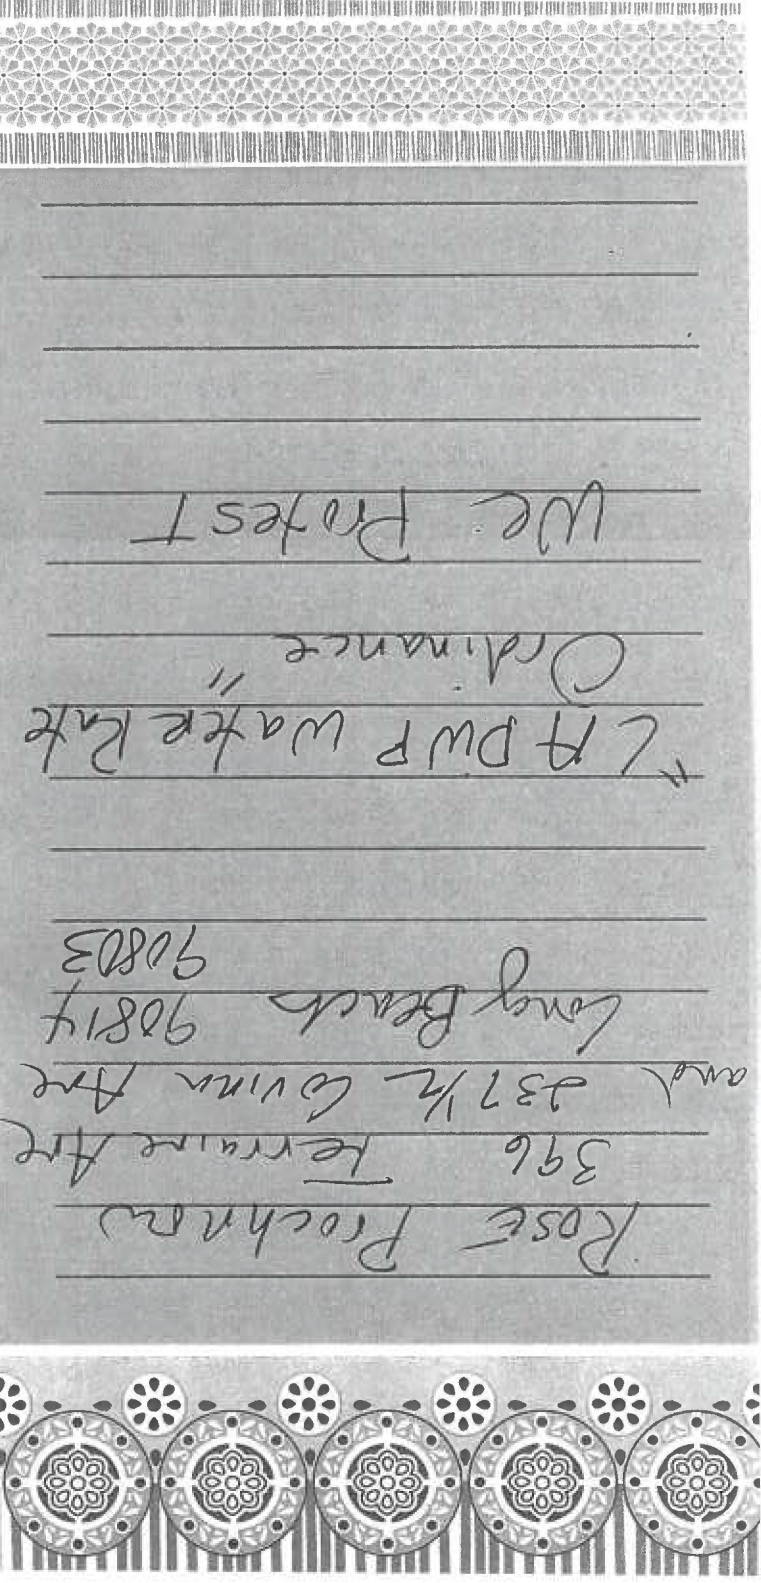 Rose Prochnow
396 Terraine Ave
and 237 1/2 Covina Ave
Long Beach 90814
90803
"LA DWP Water Rate
Ordinance"
We Protest